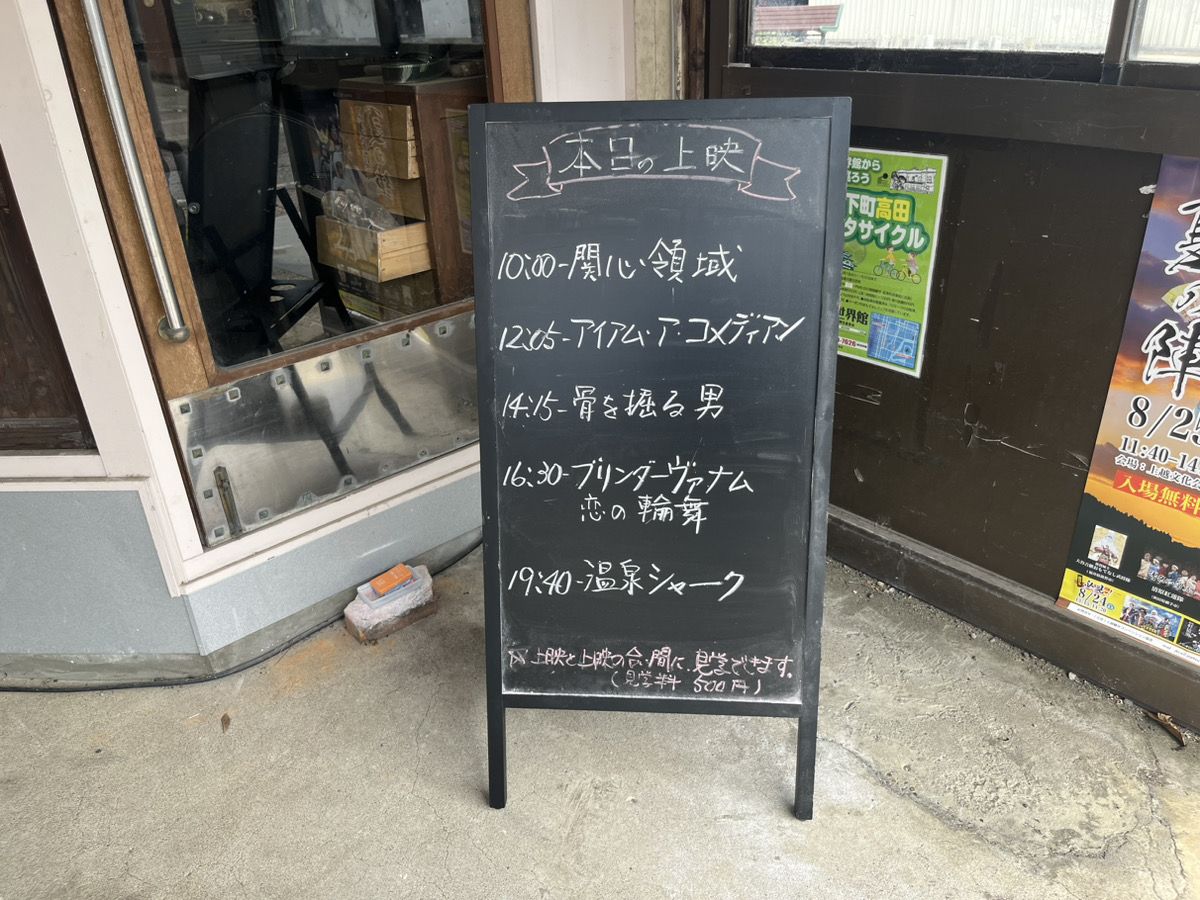 本日の上映
10:00-関心領域
12:05-アイアム・ア・コメディアン
14:15-骨を掘る男
16:30-ブリンダーヴァナム
恋の輪舞
19:40-温泉シャーク
※上映と上映の合間に見学できます。
(見学料 500円)
館から
下町高田
タサイクル
世界館
-7626
夏の
陣
8/25
11:40-14
会場:上越文化会
入場無料
8/24